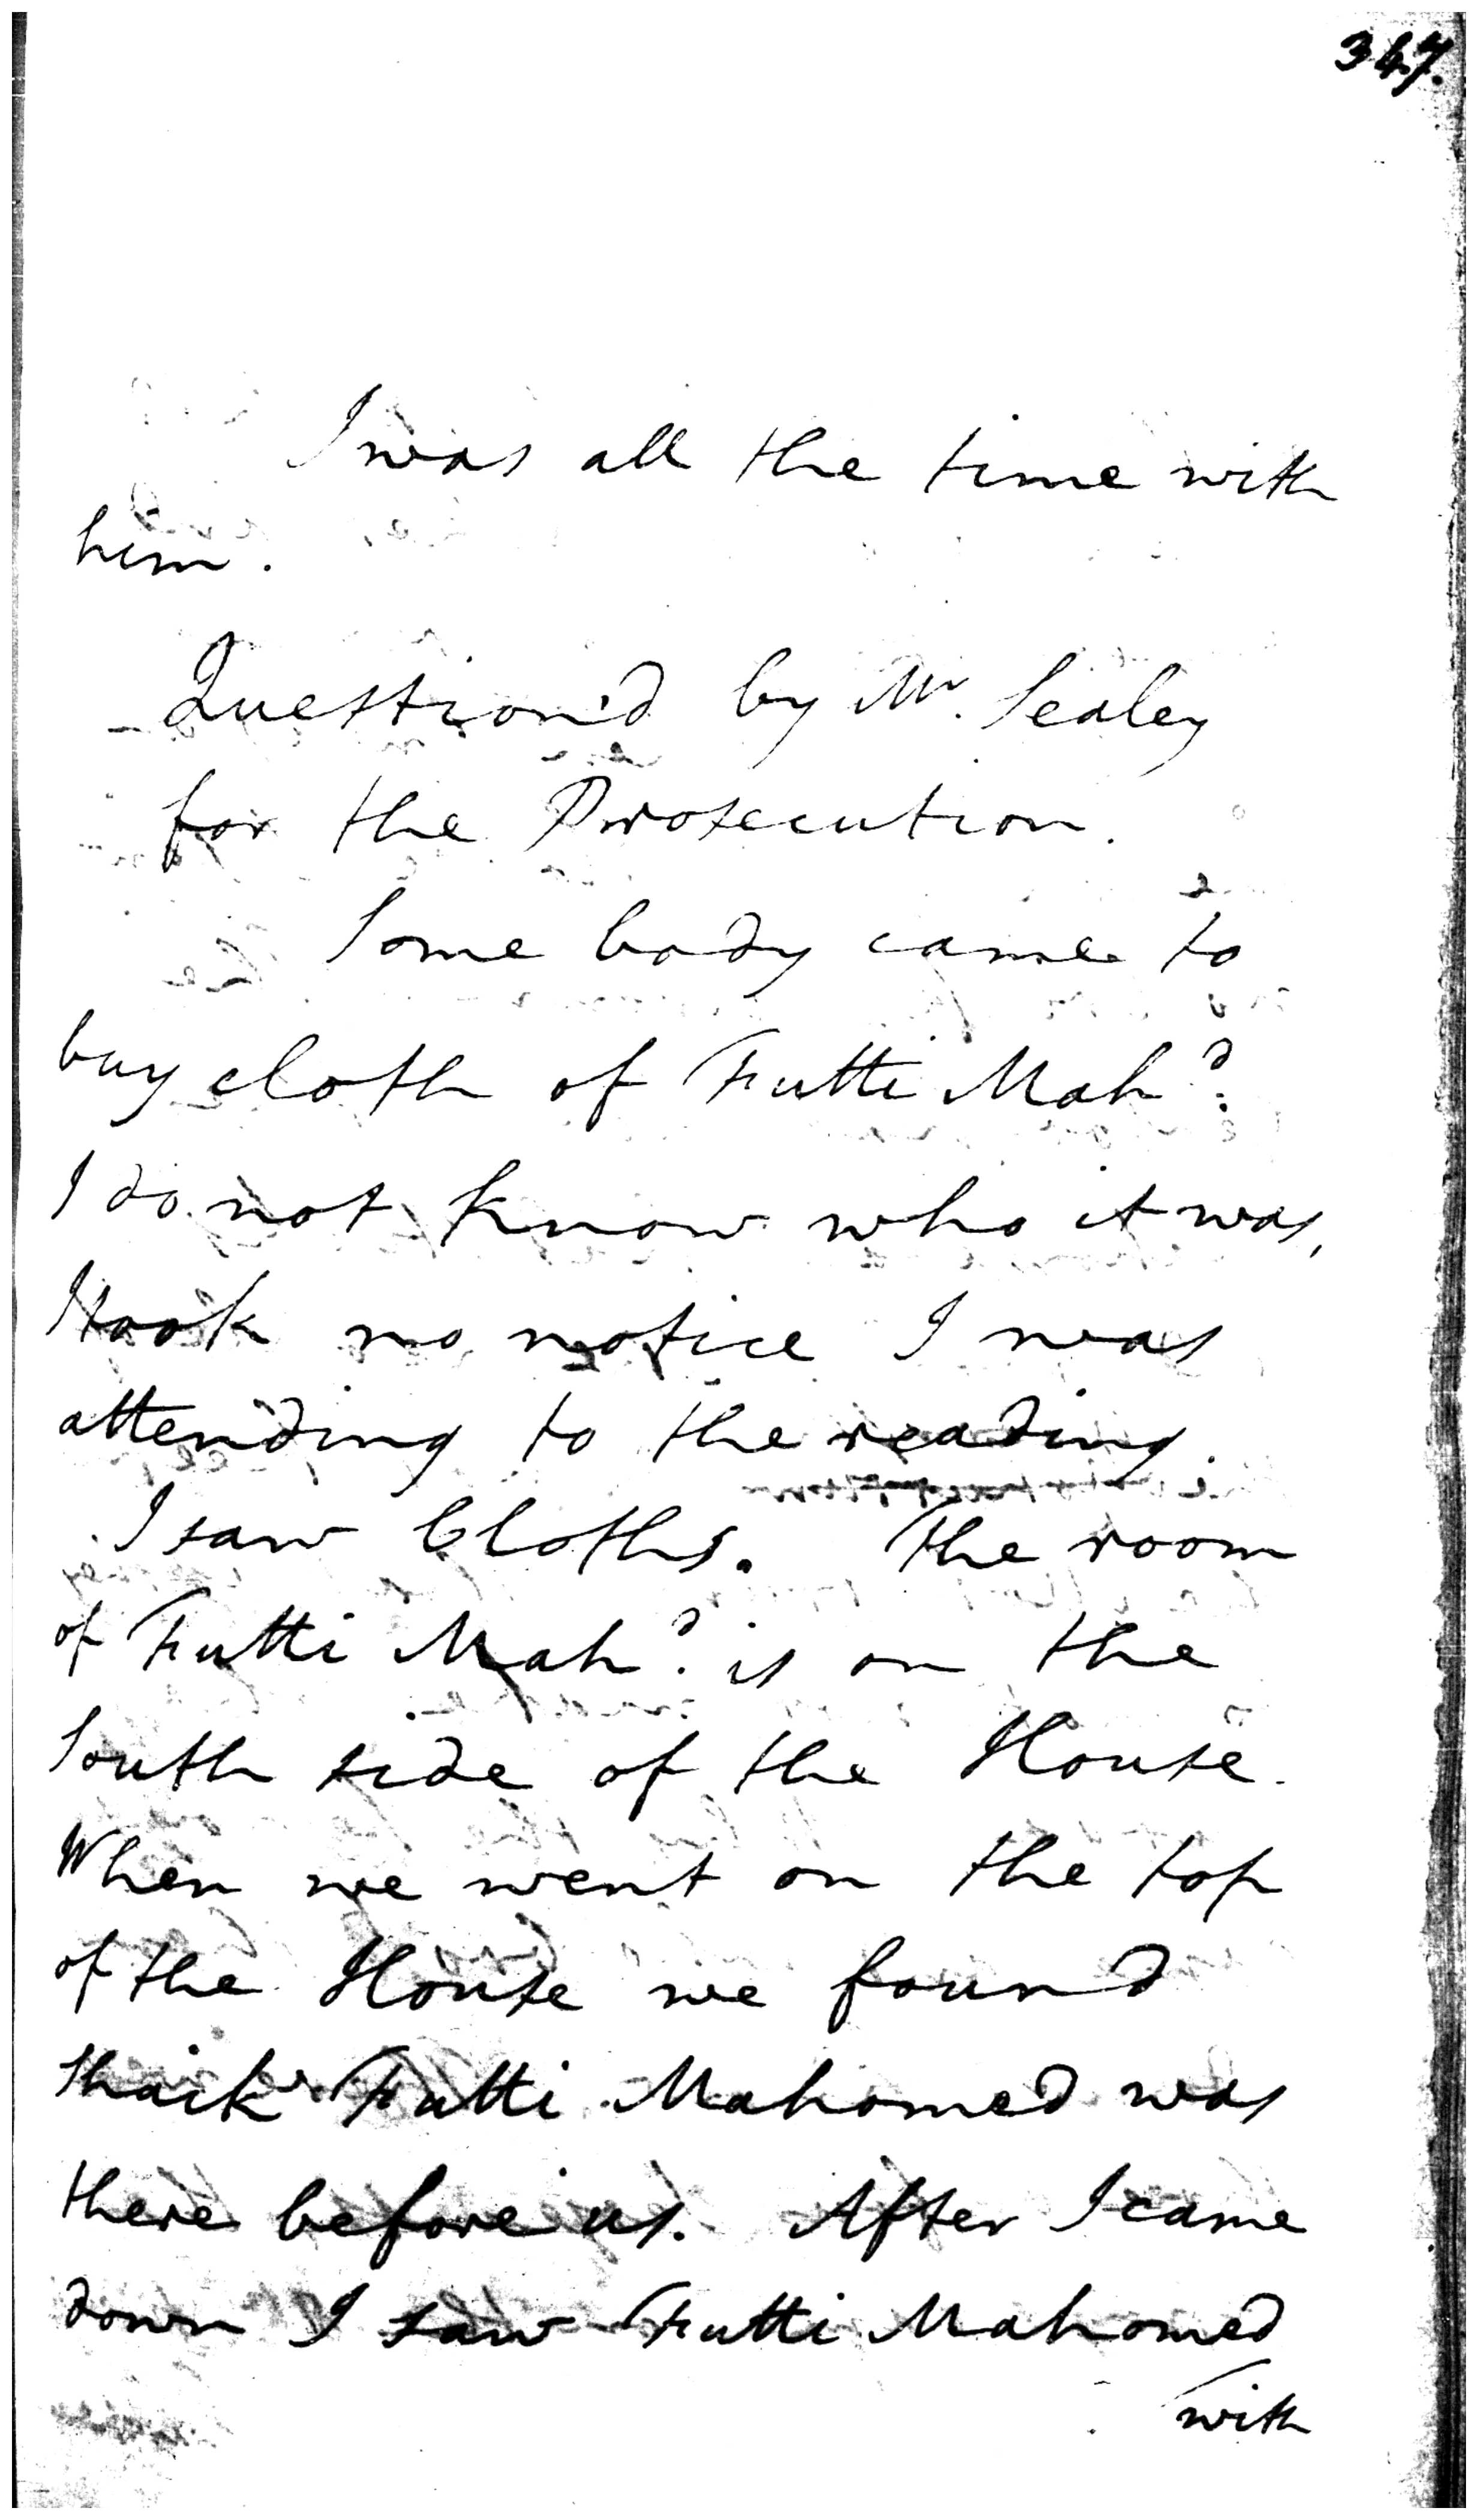 347.
I was all the time with
him.
Question'd by Mr. Sealey
for the Prosecution.
Some body came to
buy cloth of Futti Mahd.
I do not know who it was,
I took no notice I was
attending to the reading.
I saw Cloths. The room
of Futti Mahd. is on the
South side of the House.
When we went on the top
of the House we found
Shaik Futti Mahomed was
there before us. After I came
down I saw Futti Mahomed
with